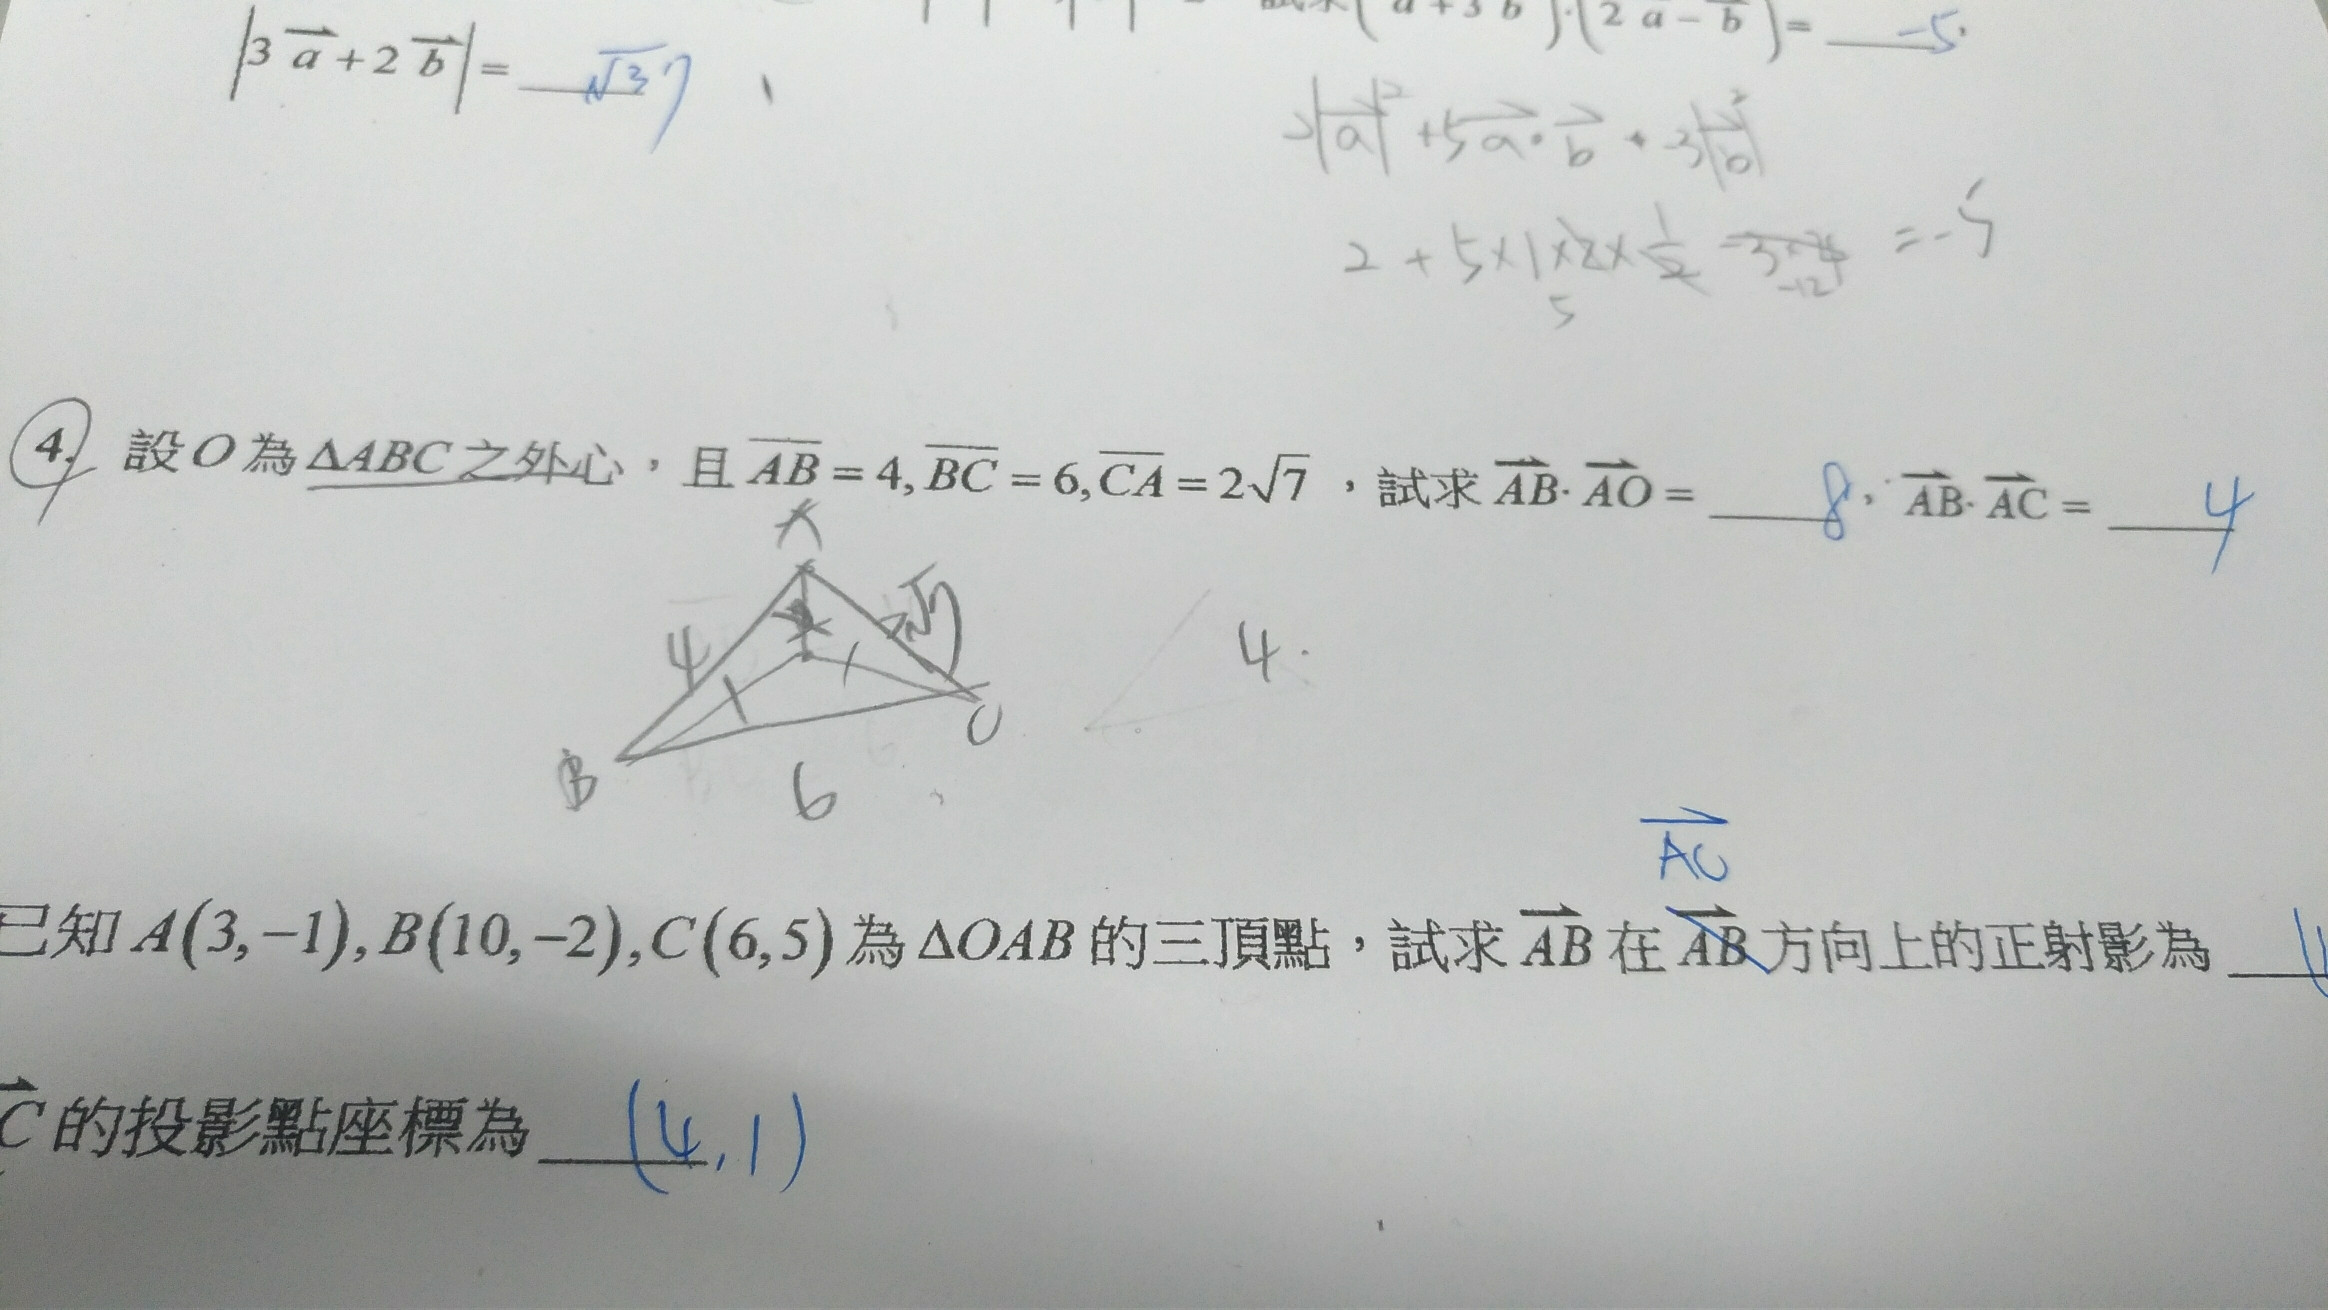 |3a+2b|= √37
a+3b)·(2a-b)= -5
2|a|²+5a·b+-3|b|²
2+5×1×2×1/2-3×4 =-5
5 -12
4. 設O為ΔABC之外心，且AB=4,BC=6,CA=2√7，試求AB·AO= 8，AB·AC= 4
A
4 2√7 4.
B C
6
AC
已知A(3,-1),B(10,-2),C(6,5)為ΔOAB的三頂點，試求AB在AB方向上的正射影為
C的投影點座標為 (4,1)